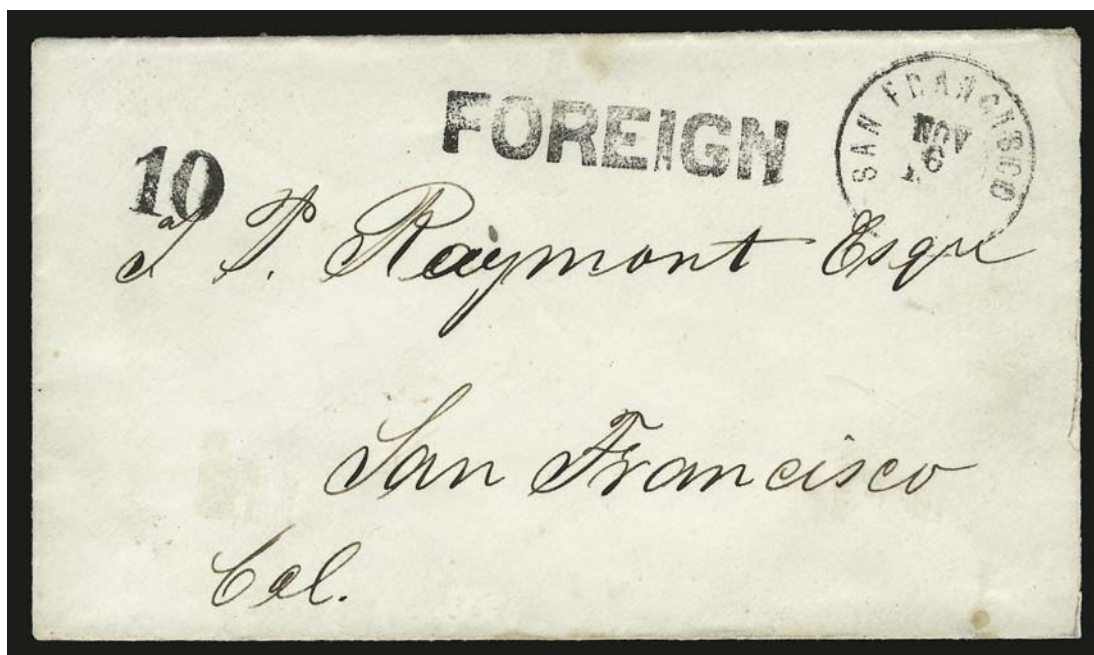 FOREIGN
SAN FRANCISCO
NOV
6
10
J P. Raymont Esqre
San Francisco
Cal.